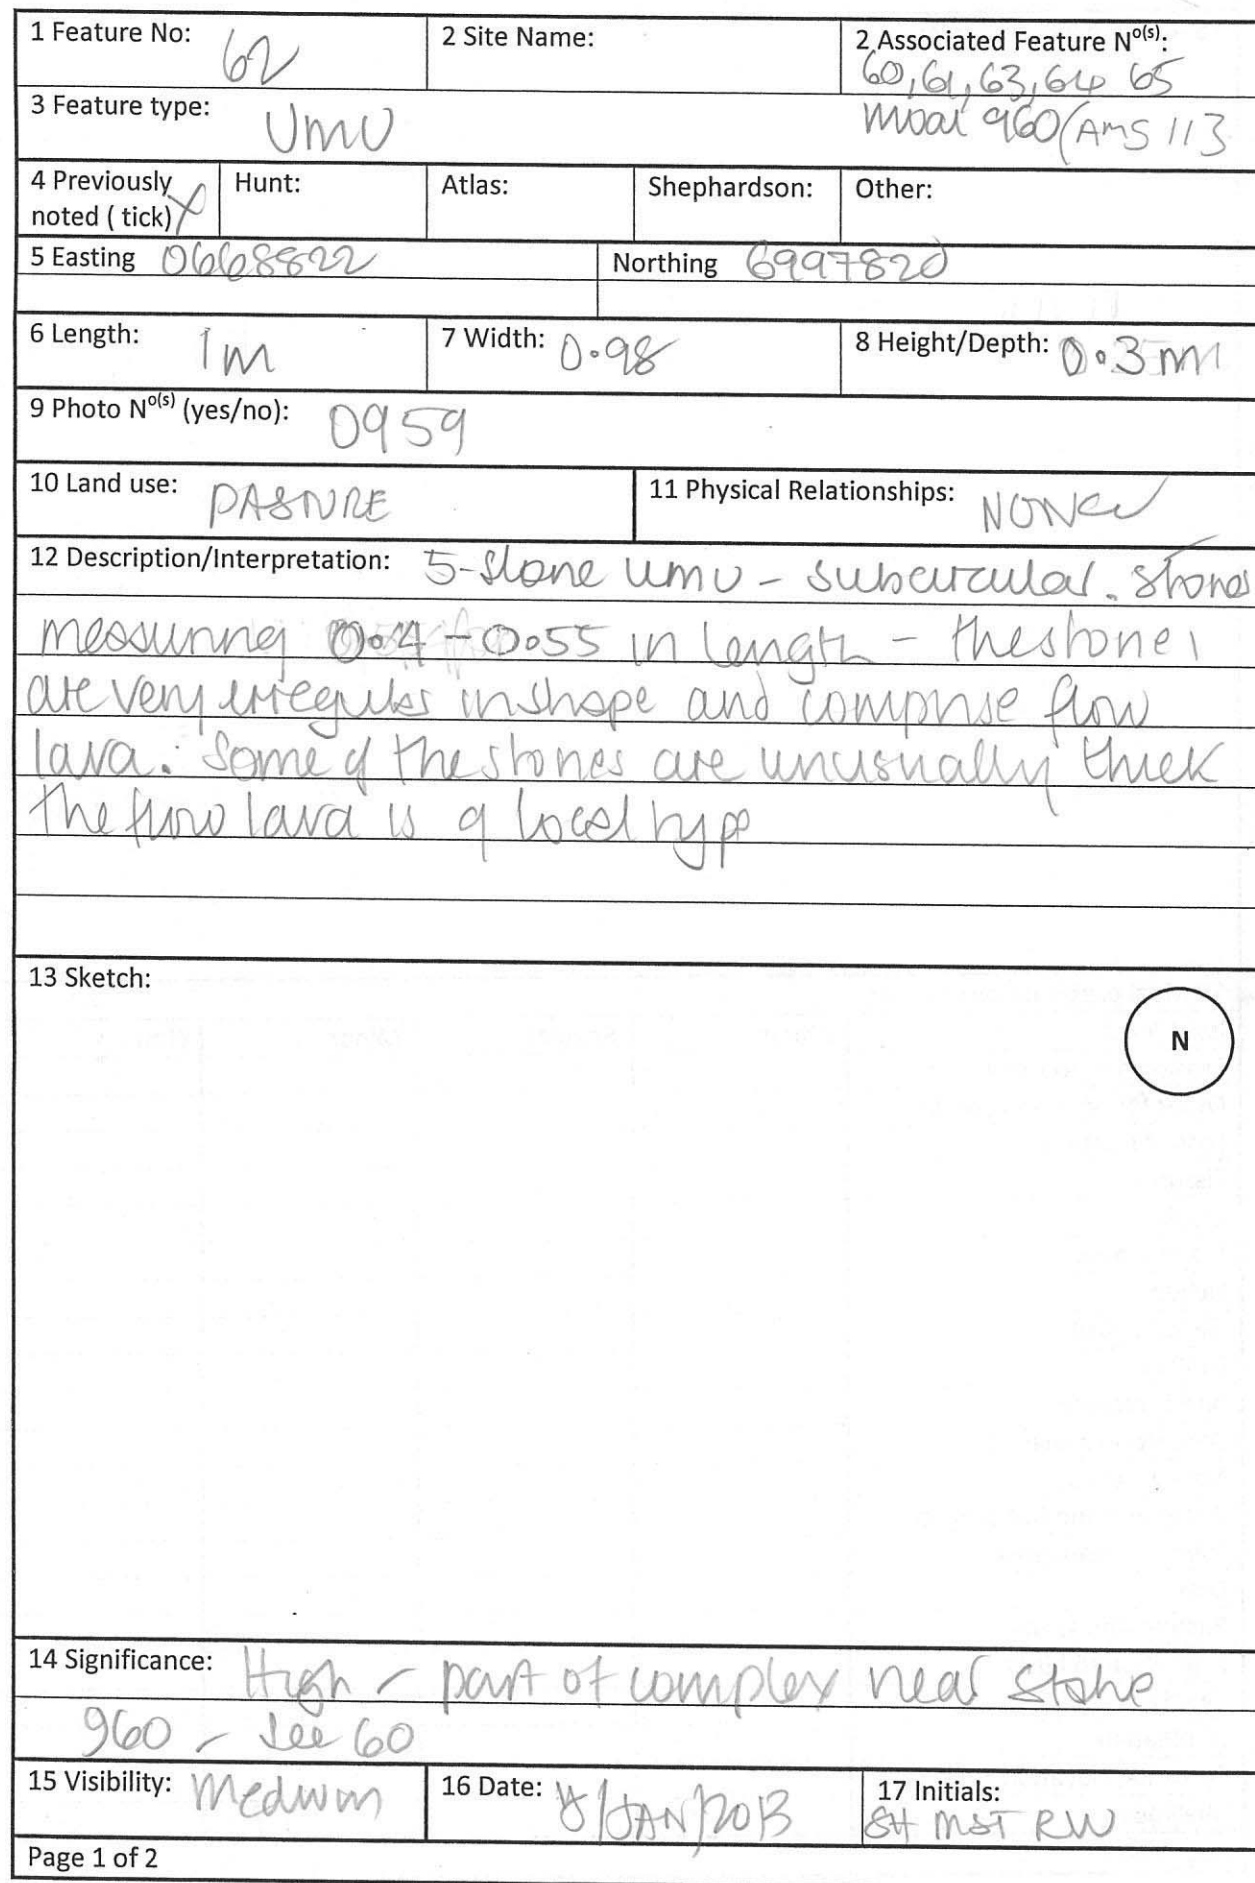 1 Feature No: 62
2 Site Name:
2 Associated Feature No(s):
60, 61, 63, 64 65
moai 960 (AMS 113
3 Feature type: UMU
4 Previously noted ( tick) X
Hunt:
Atlas:
Shephardson:
Other:
5 Easting 0668822
Northing 6997820
6 Length: 1m
7 Width: 0.98
8 Height/Depth: 0.3m
9 Photo No(s) (yes/no): 0959
10 Land use: PASTURE
11 Physical Relationships: NONE
12 Description/Interpretation: 5-stone umu - subcircular. stones
measuring 0.4 - 0.55 in length - the stones
are very irregular in shape and comprise flow
lava. Some of the stones are unusually thick
The flow lava is of local type
13 Sketch:
N
14 Significance: High - part of complex near statue
960 - see 60
15 Visibility: Medium
16 Date: /JAN/2013
17 Initials:
SH MST RW
Page 1 of 2